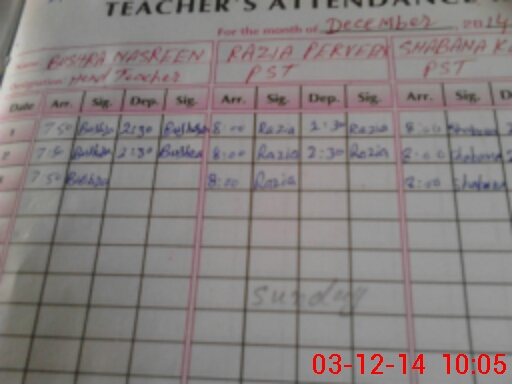 TEACHER'S ATTENDANCE
For the month of December 2014
BUSHRA NASREEN RAZIA PERVEEN SHABANA
Head Teacher PST PST
Date Arr. Sig. Dep. Sig. Arr. Sig. Dep. Sig. Arr. Sig.
1 7:50 Bushra 2:30 Bushra 8:00 Razia 2:30 Razia 8:00 Shabana
2 7:50 Bushra 2:30 Bushra 8:00 Razia 2:30 Razia 8:00 Shabana
7:50 Bushra 8:00 Razia 8:00 Shabana
sunday
03-12-14 10:05